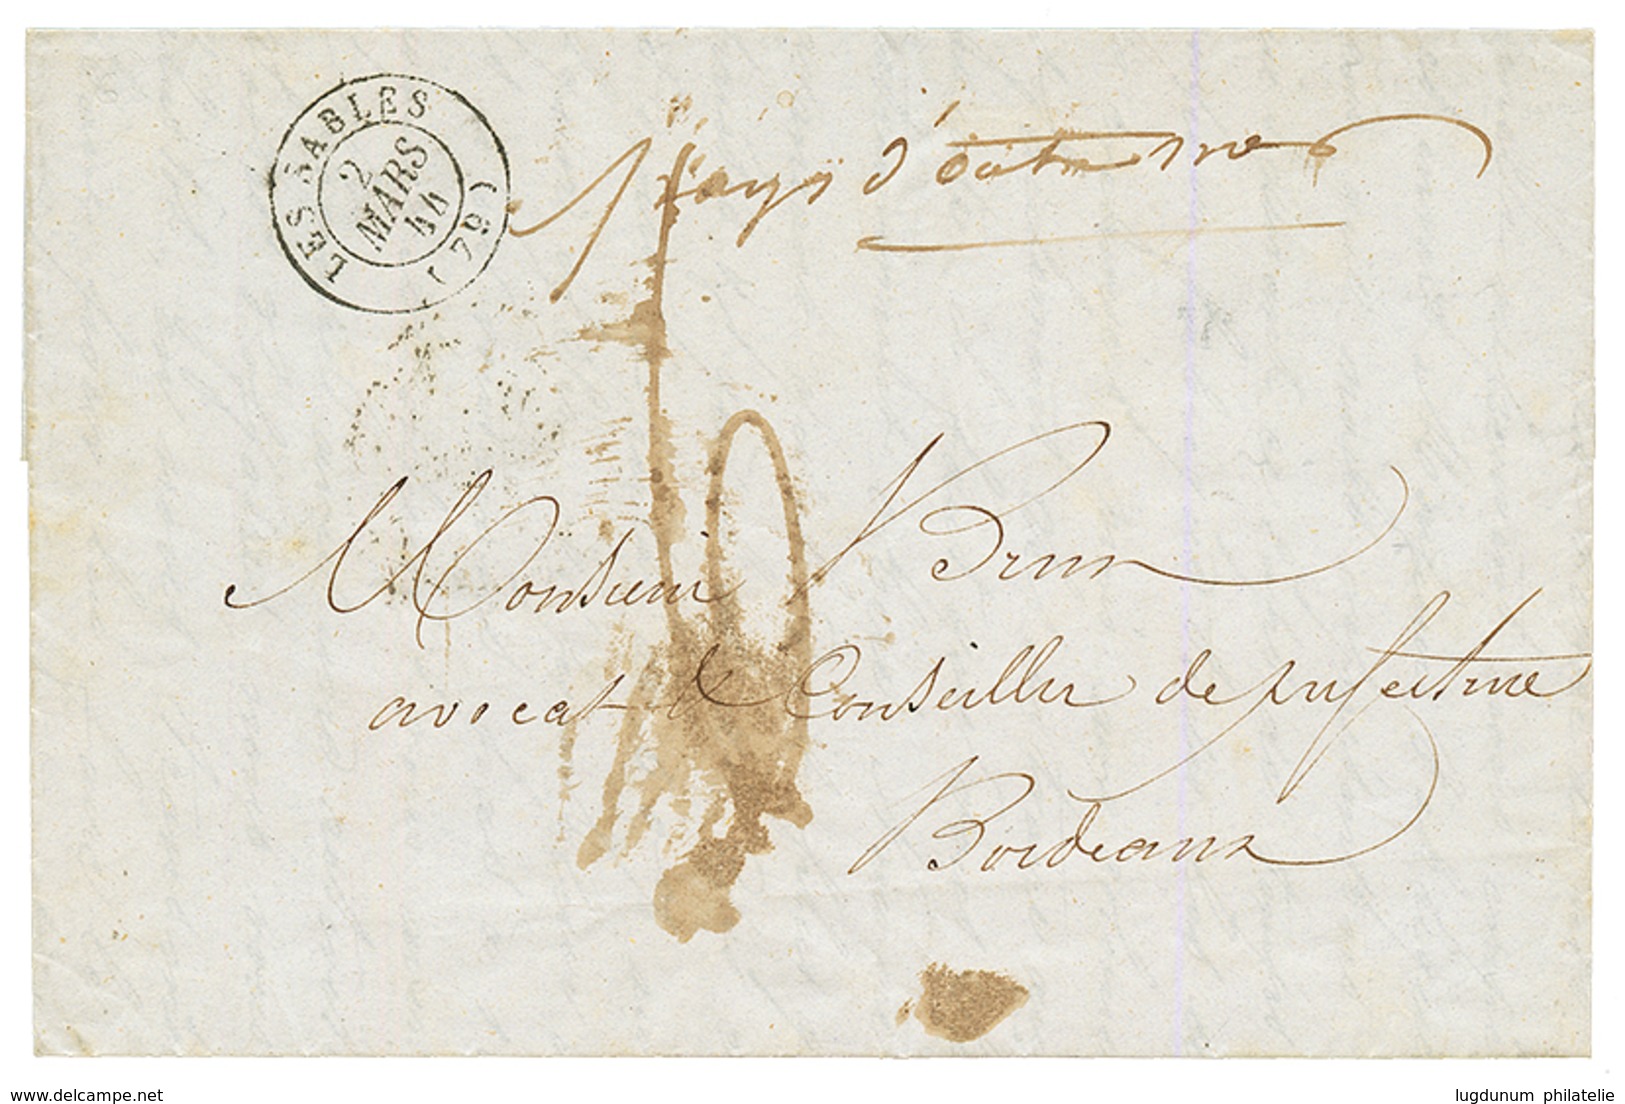 LES SABLES
2
MARS
44
(79)
pays d'outremer
10
Monsieur Brun
avocat & Conseiller de prefecture
Bordeaux
www.delcampe.net
lugdunum philatelie